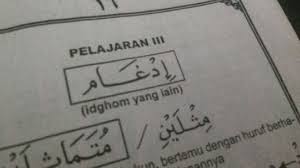 ١٦
PELAJARAN III
إِدْغَام
(idghom yang lain)
مِثْلَيْنِ /
bertemu dengan huruf berha-